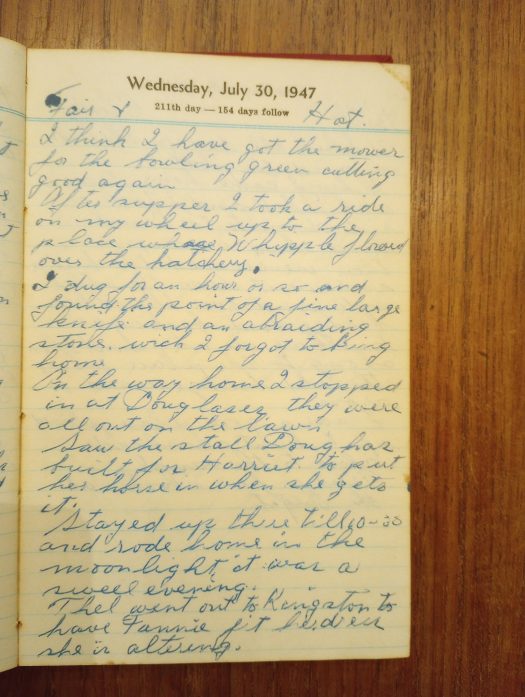 Wednesday, July 30, 1947
211th day — 154 days follow
Fair & Hot.
I think I have got the mower
for the bowling green cutting
good again
After supper I took a ride
on my wheel up to the
place where Whipple plowed
over the hatchery.
I dug for an hour or so and
found the point of a fine large
knife and an abraiding
stone. wich I forgot to bring
home
On the way home I stopped
in at Douglases, they were
all out on the lawn
Saw the stall Doug has
built for Harriet to put
her horse in when she gets
it.
Stayed up there till 10-
and rode home in the
moonlight it was a
swell evening.
Thel went out to Kingston to
have Fannie fit
she is altering.